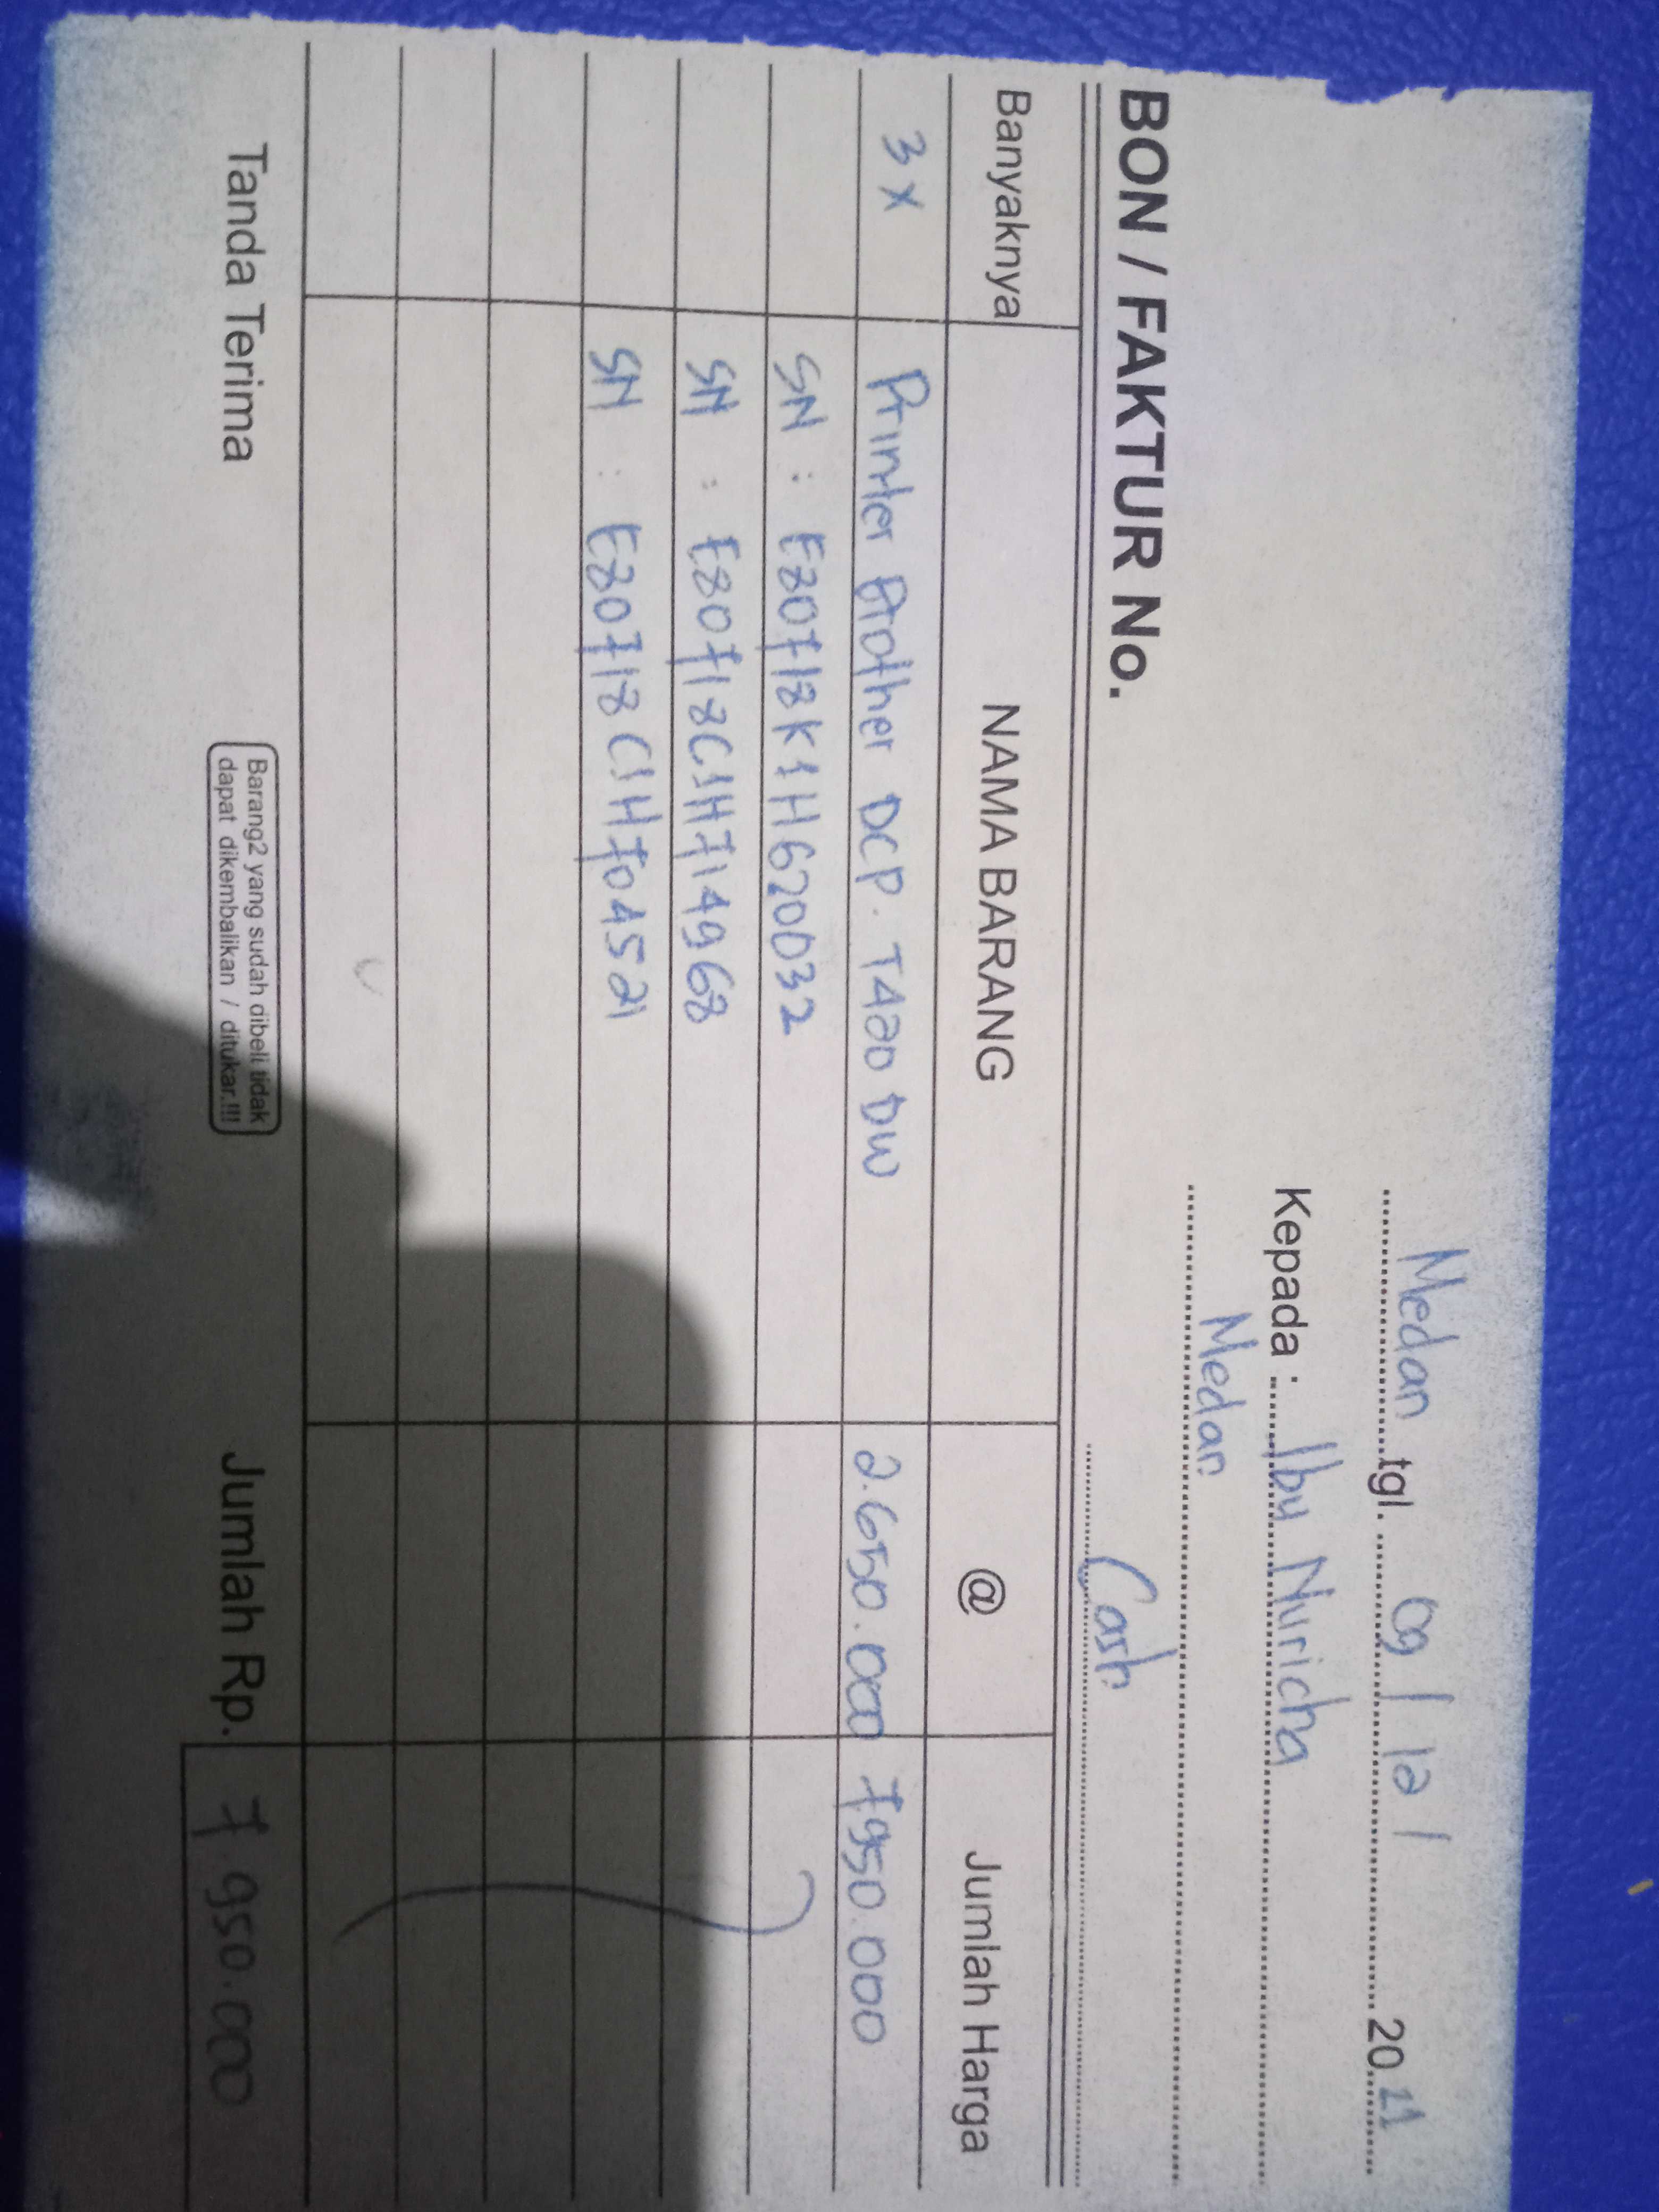 Medan tgl. 09 / 12 / 2021
Kepada : Ibu Nuricha
Medan
BON / FAKTUR No.
Cash
Banyaknya NAMA BARANG @ Jumlah Harga
3 x Printer Brother DCP. T420 DW 2.650.000 7.950.000
SN : E80718K1H620032
SN : E80718C1H714968
SN : E80718C1H704521
Tanda Terima
Barang2 yang sudah dibeli tidak
dapat dikembalikan / ditukar.!!!
Jumlah Rp. 7.950.000